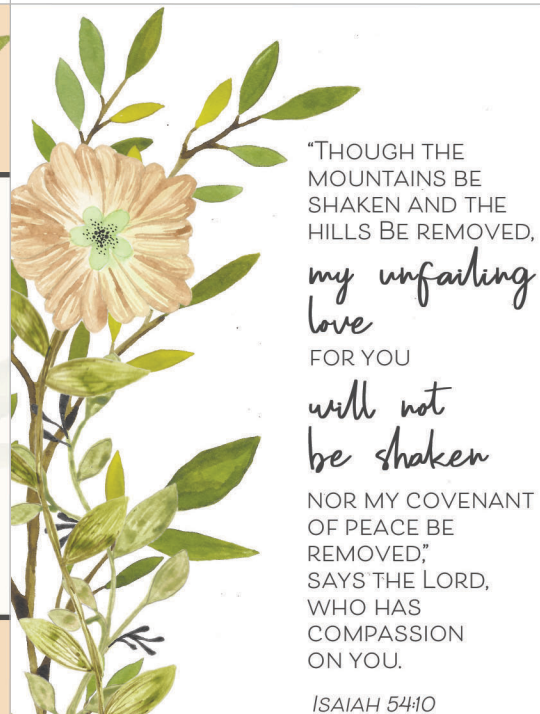 “Though the
mountains be
shaken and the
hills Be removed,
my unfailing
love
for you
will not
be shaken
nor my covenant
of peace be
removed,”
says the Lord,
who has
compassion
on you.
Isaiah 54:10